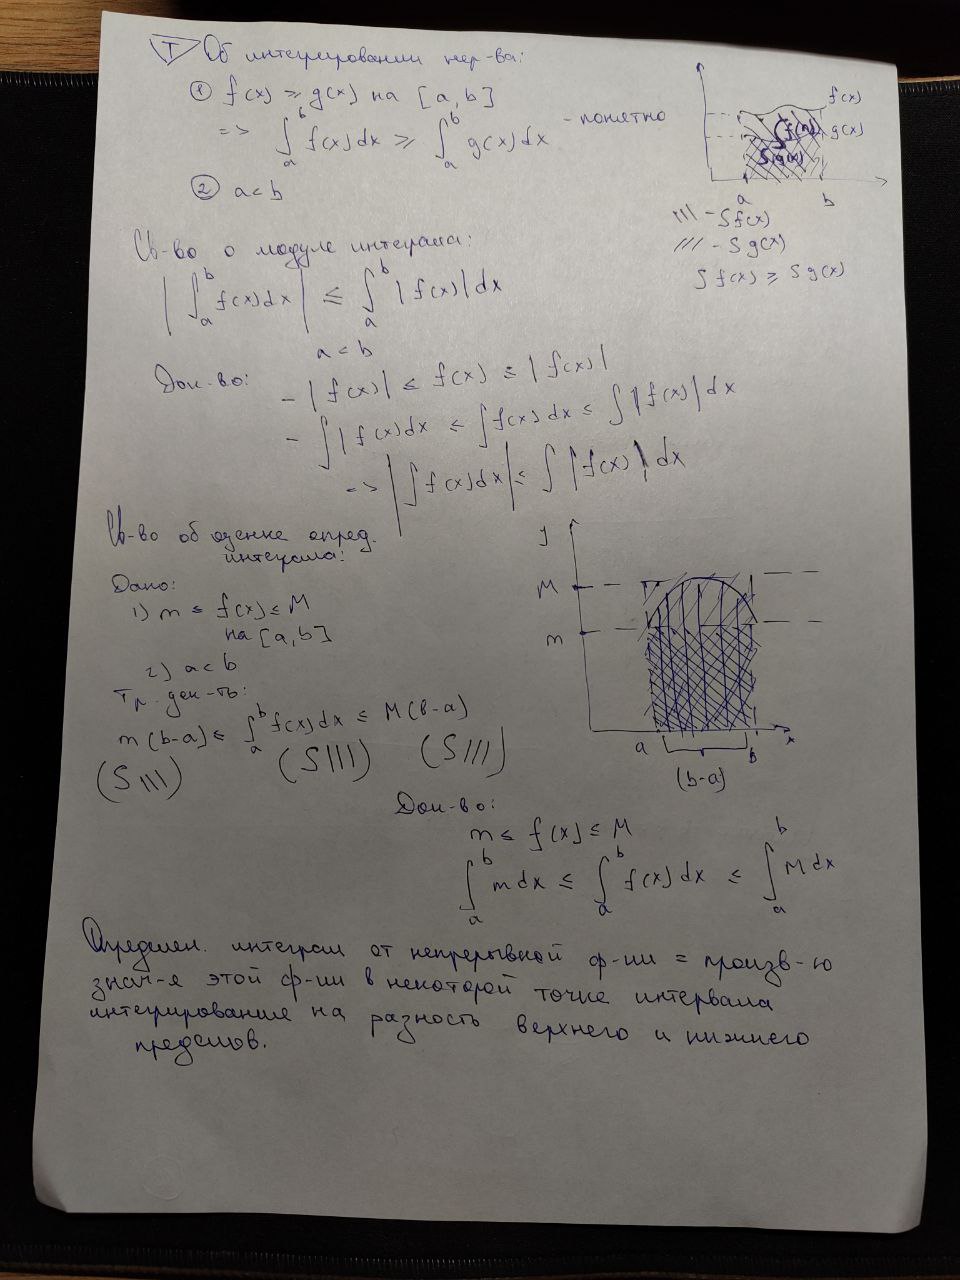 Т Об интегрировании нер-ва:
① f(x) ≥ g(x) на [a, b]
=> ∫_a^b f(x)dx ≥ ∫_a^b g(x)dx - понятно
② a < b
f(x)
g(x)
∫f(x)
∫g(x)
a b
||| - ∫f(x)
/// - ∫g(x)
∫f(x) ≥ ∫g(x)
Св-во о модуле интеграла:
|∫_a^b f(x)dx| ≤ ∫_a^b |f(x)|dx
a < b
Док-во: -|f(x)| ≤ f(x) ≤ |f(x)|
-∫|f(x)dx ≤ ∫f(x)dx ≤ ∫|f(x)|dx
=> |∫f(x)dx| ≤ ∫|f(x)|dx
Св-во об оценке опред.
интеграла:
Дано:
1) m ≤ f(x) ≤ M
на [a, b]
2) a < b
Тр. док-ть:
m(b-a) ≤ ∫_a^b f(x)dx ≤ M(b-a)
(S \\\) (S |||) (S ///)
y
M
m
a b x
(b-a)
Док-во:
m ≤ f(x) ≤ M
∫_a^b mdx ≤ ∫_a^b f(x)dx ≤ ∫_a^b Mdx
Определен. интеграл от непрерывной ф-ии = произв-ю
знач-я этой ф-ии в некоторой точке интервала
интегрирование на разность верхнего и нижнего
пределов.